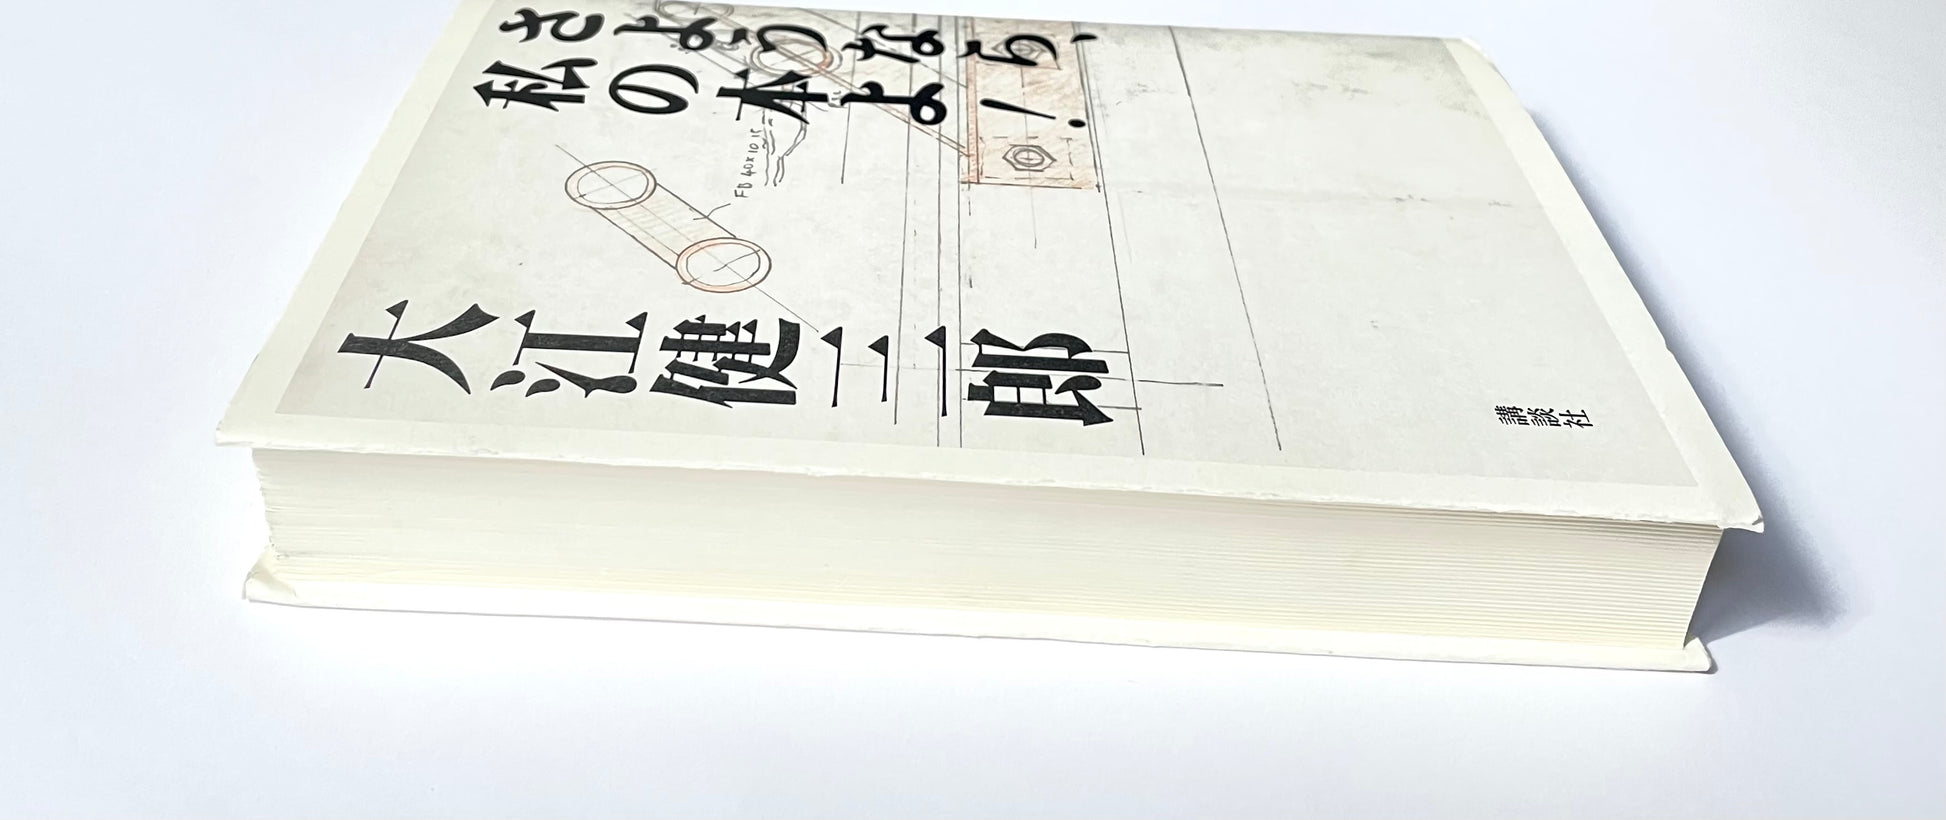 さようなら、
私の本よ！
大江健三郎
講談社
FB 40×10